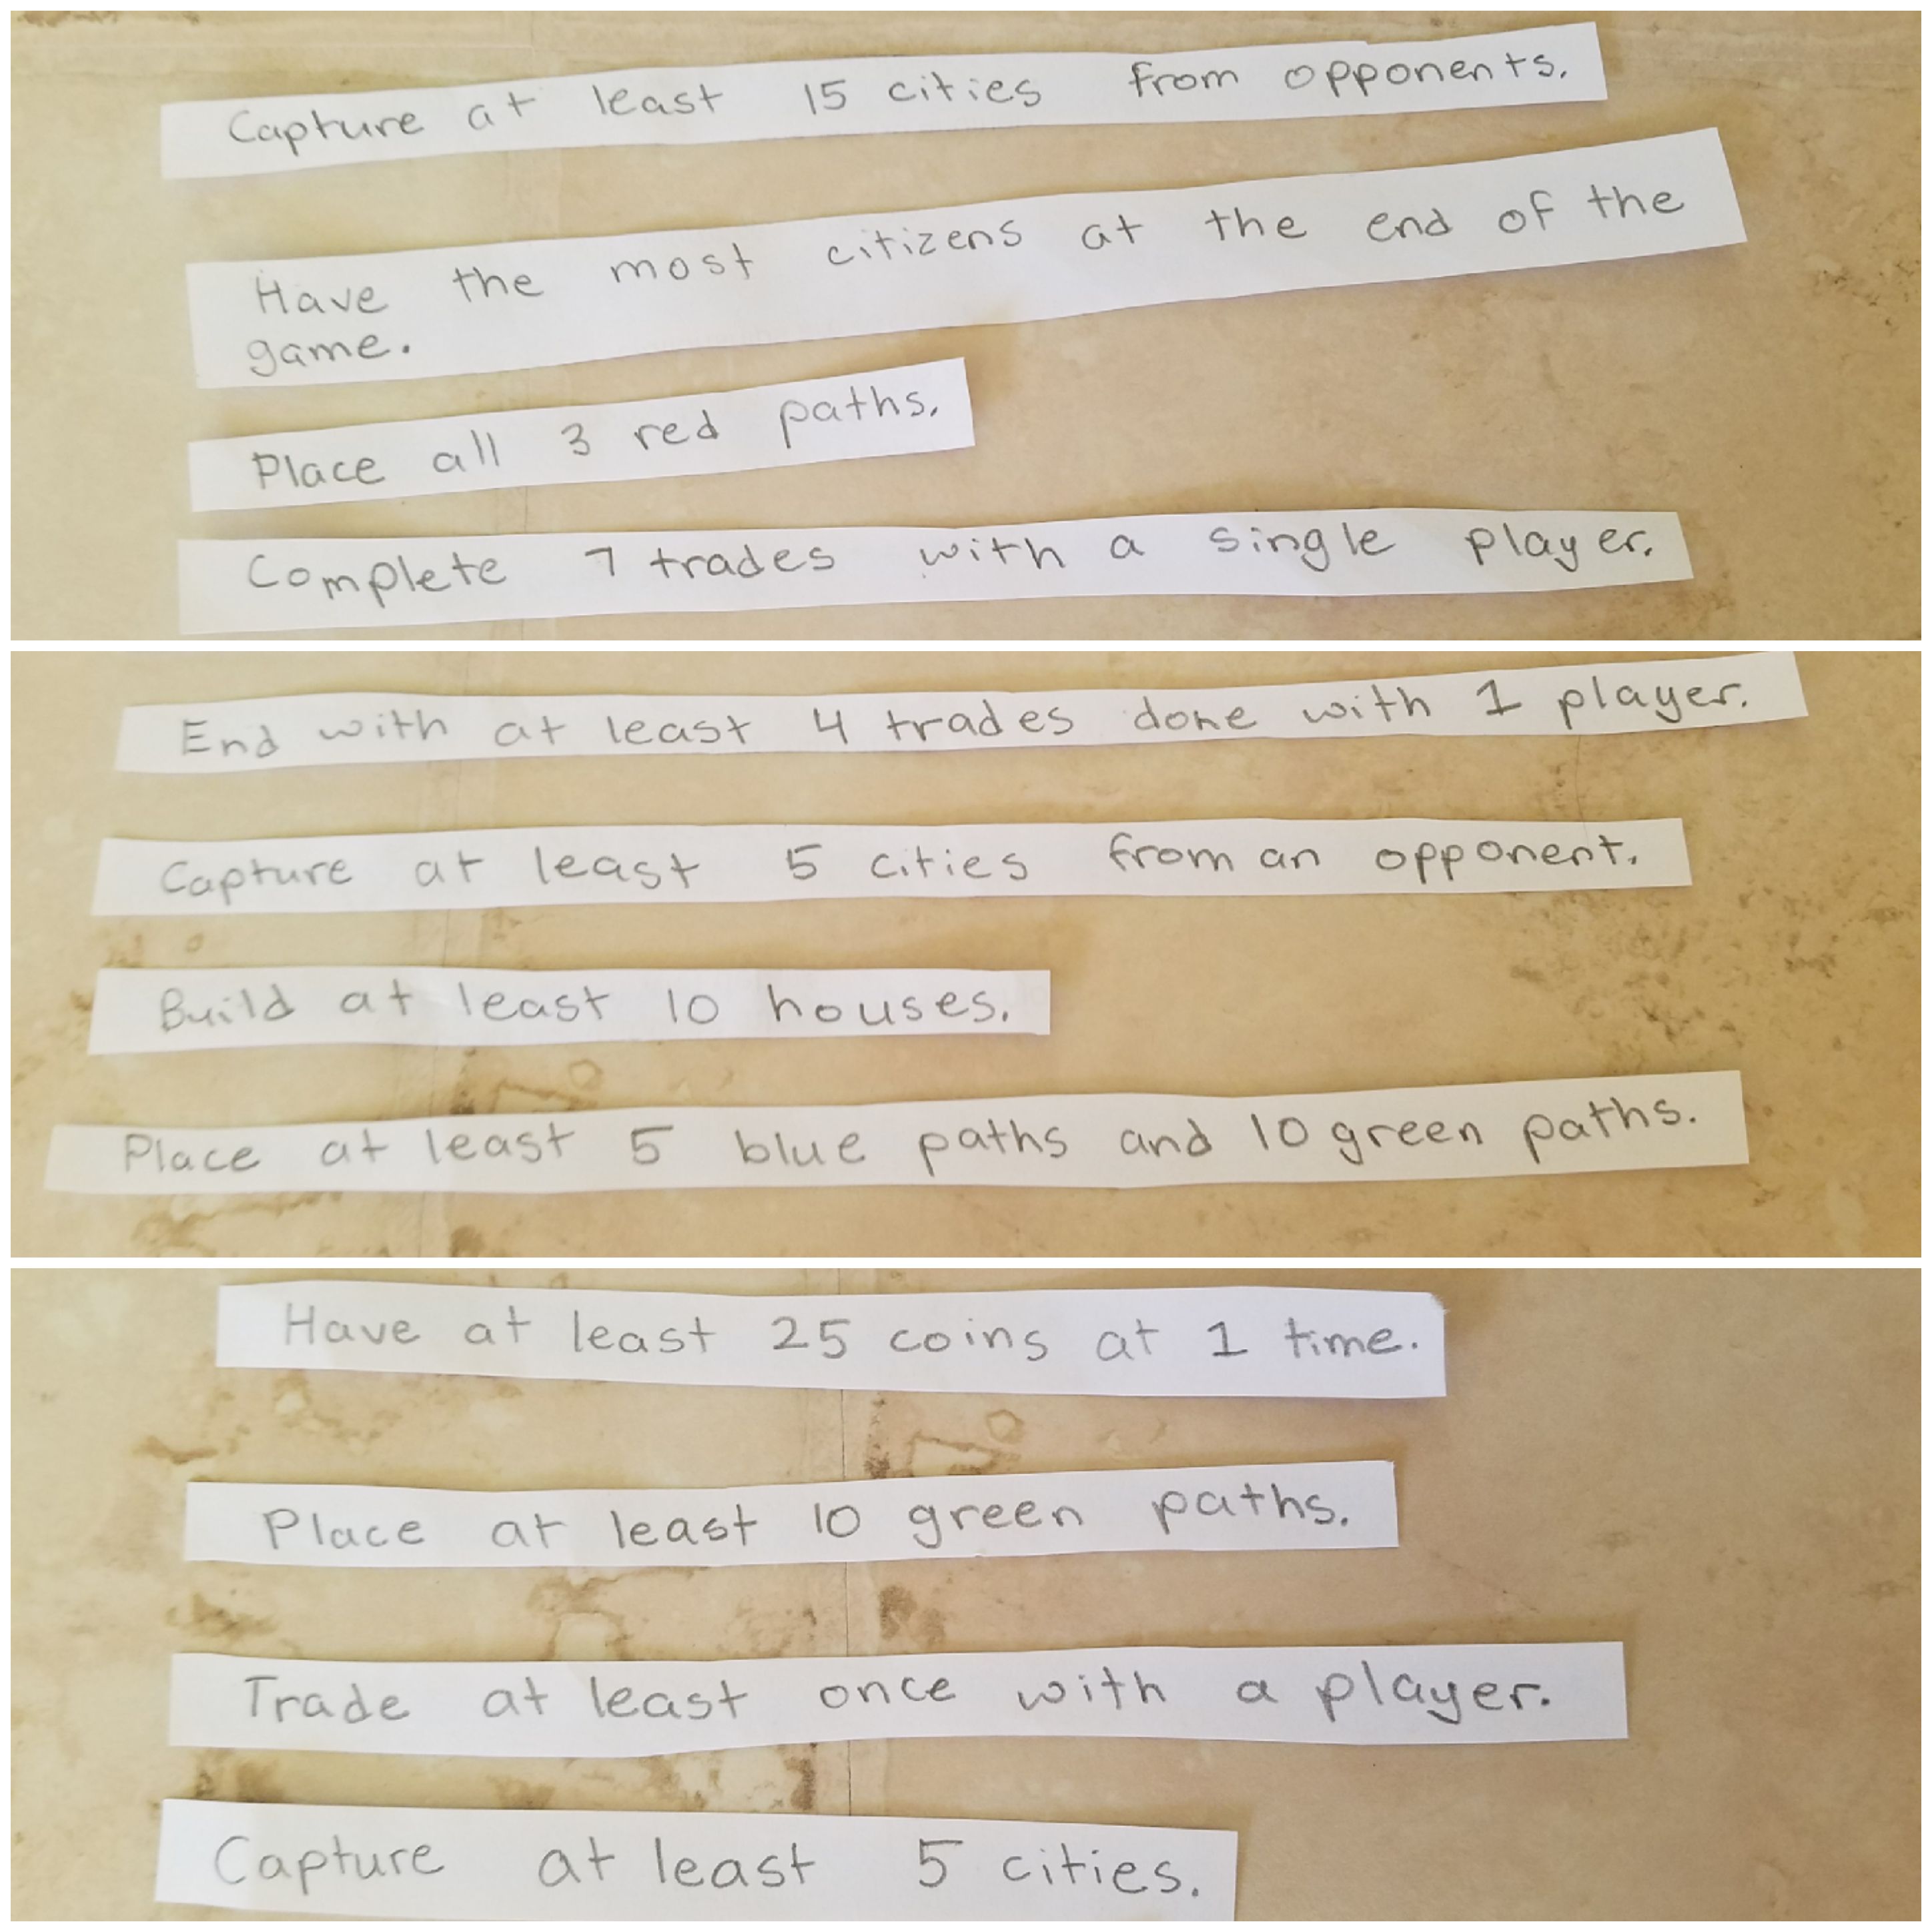 Capture at least 15 cities from opponents.
Have the most citizens at the end of the
game.
Place all 3 red paths.
Complete 7 trades with a single player.
End with at least 4 trades done with 1 player.
Capture at least 5 cities from an opponent.
Build at least 10 houses.
Place at least 5 blue paths and 10 green paths.
Have at least 25 coins at 1 time.
Place at least 10 green paths.
Trade at least once with a player.
Capture at least 5 cities.